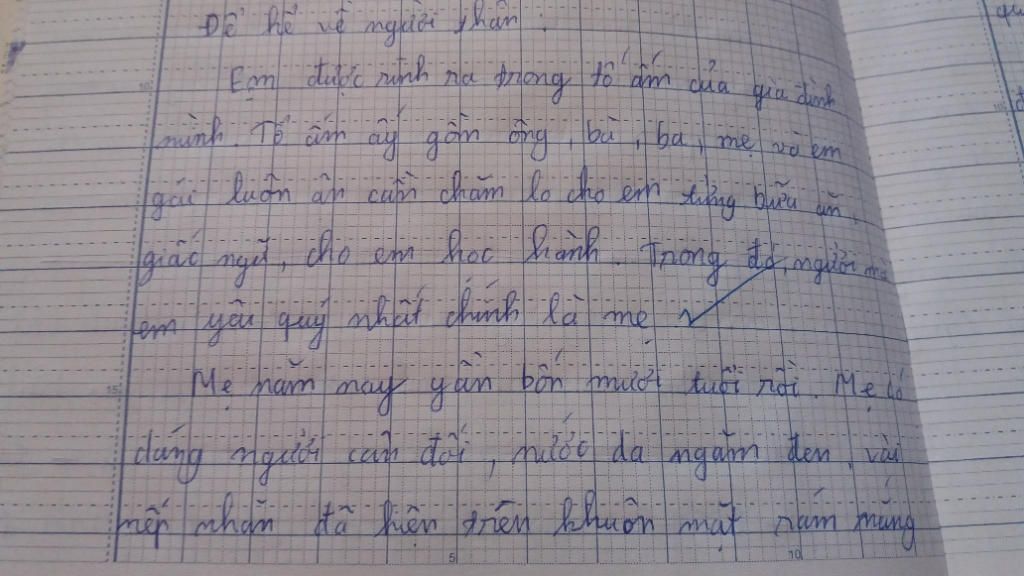 Đề kể về người thân.
Em được sinh ra trong tổ ấm của gia đình
mình. Tổ ấm ấy gồm ông, bà, ba, mẹ và em
gái luôn ân cần chăm lo cho em từng bữa ăn,
giấc ngủ, cho em học hành. Trong đó, người mà
em yêu quý nhất chính là mẹ
Mẹ năm nay gần bốn mươi tuổi rồi. Mẹ có
dáng người cân đối, nước da ngăm đen, vài
nếp nhăn đã hiện trên khuôn mặt rám nắng
5
10
15
10